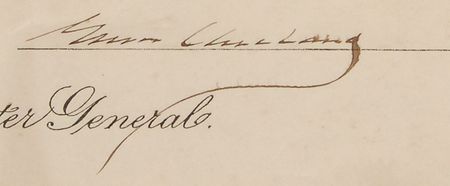 Grover Cleveland
ter General.